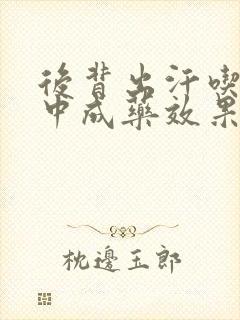 後背出汗喫
中成藥效果
枕邊玉郎